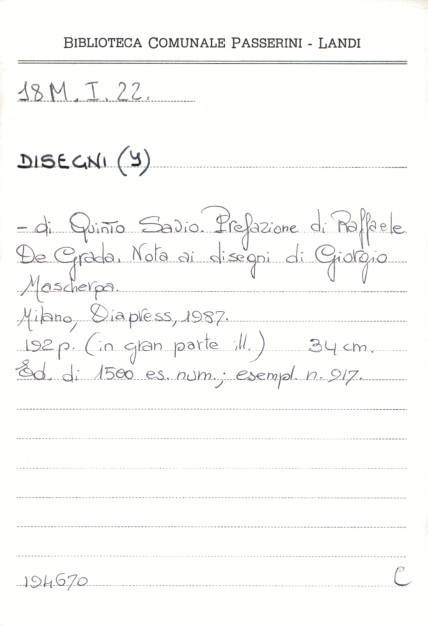 BIBLIOTECA COMUNALE PASSERINI - LANDI
18M. I. 22.
DISEGNI (I)
- di Quinto Savio. Prefazione di Raffaele
De Grada. Nota ai disegni di Giorgio
Mascherpa.
Milano, Diapress, 1987.
192 p. (in gran parte ill.) 34 cm.
Ed. di 1500 es. num.; esempl. n. 917.
194670 C